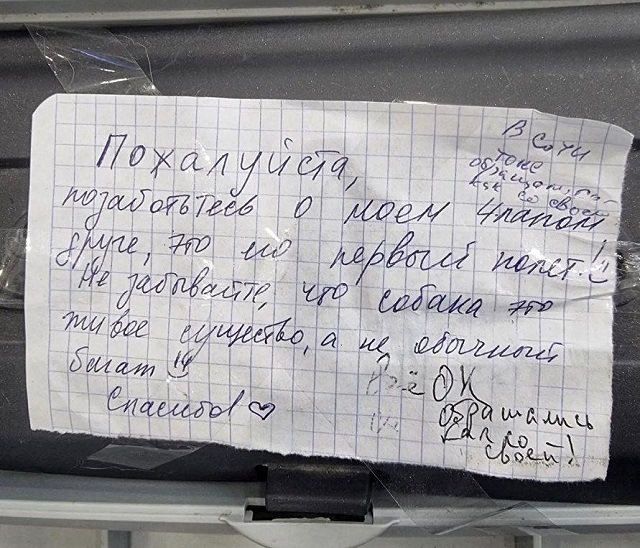 Пожалуйста,
позаботьтесь о моем 4лапом
друге, это его первый полет!
Не забывайте, что собака это
живое существо, а не обычный
багаж
Спасибо! ♡
В Сочи
тоже
обращались
как со своей
Всё ОК
Обращались
как со
своей!